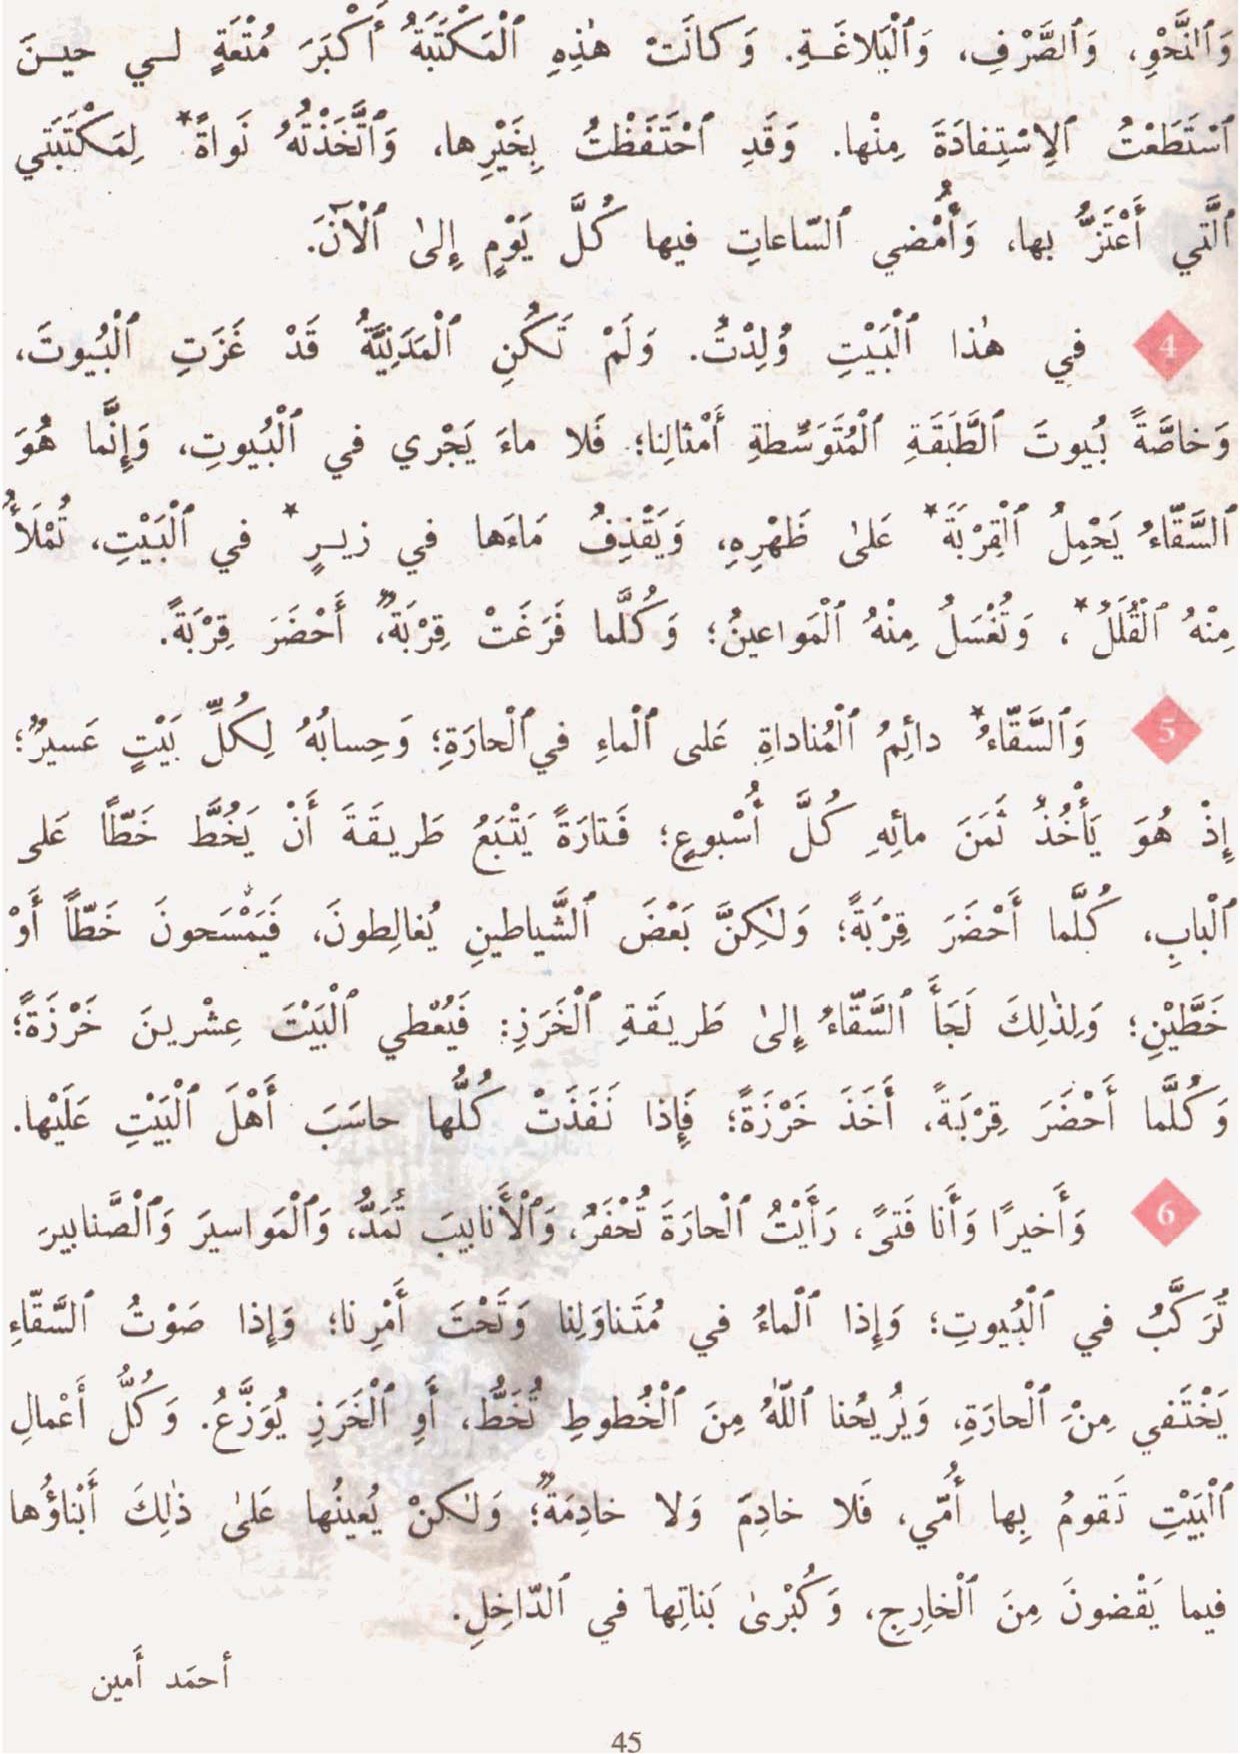 وَٱلنَّحْوِ، وَٱلصَّرْفِ، وَٱلْبَلاغَـةِ. وَكانَتْ هٰذِهِ ٱلْمَكْتَبَةُ أَكْبَرَ مُتْعَةٍ لـي حيـنَ
ٱسْتَطَعْتُ ٱلِاسْتِفادَةَ مِنْها. وَقَدِ ٱحْتَفَظْتُ بِخَيْرِها، وَٱتَّخَذْتُهُ نَواةً* لِمَكْتَبَتي
ٱلَّتي أَعْتَزُّ بها، وَأُمْضي ٱلسّاعاتِ فيها كُلَّ يَوْمٍ إِلىٰ ٱلْآنَ.
4 في هٰذا ٱلْبَيْتِ وُلِدْتُ. وَلَمْ تَكُنِ ٱلْمَدَنِيَّةُ قَدْ غَزَتِ ٱلْبُيوتَ،
وَخاصَّةً بُيوتَ ٱلطَّبَقَةِ ٱلْمُتَوَسِّطةِ أَمْثالِنا؛ فَلا ماءَ يَجْري في ٱلْبُيوتِ، وَإِنَّما هُوَ
ٱلسَّقّاءُ يَحْمِلُ ٱلْقِرْبَةَ* عَلىٰ ظَهْرِهِ، وَيَقْذِفُ مَاءَها في زيـرٍ* في ٱلْبَيْتِ، تُمْلَأُ
مِنْهُ ٱلْقُلَلُ*، وَتُغْسَلُ مِنْهُ ٱلْمَواعينُ؛ وَكُلَّما فَرَغَتْ قِرْبَةٌ، أَحْضَرَ قِرْبَةً.
5 وَٱلسَّقّاءُ* دائِمُ ٱلْمُناداةِ عَلى ٱلْماءِ في ٱلْحارَةِ؛ وَحِسابُهُ لِكُلِّ بَيْتٍ عَسيرٌ؛
إِذْ هُوَ يَأْخُذُ ثَمَنَ مائِهِ كُلَّ أُسْبوعٍ؛ فَتارَةً يَتْبَعُ طَريقَةَ أَنْ يَخُطَّ خَطّاً عَلى
ٱلْبابِ، كُلَّما أَحْضَرَ قِرْبَةً؛ وَلٰكِنَّ بَعْضَ ٱلشَّياطينِ يُغالِطونَ، فَيَمْسَحونَ خَطّاً أَوْ
خَطَّيْنِ؛ وَلِذٰلِكَ لَجَأَ ٱلسَّقّاءُ إِلىٰ طَريقَةِ ٱلْخَرَزِ: فَيُعْطي ٱلْبَيْتَ عِشْرينَ خَرْزَةً؛
وَكُلَّما أَحْضَرَ قِرْبَةً، أَخَذَ خَرْزَةً؛ فَإِذا نَفَذَتْ كُلُّها حاسَبَ أَهْلَ ٱلْبَيْتِ عَلَيْها.
6 وَأَخيرًا وَأَنا فَتىً، رَأَيْتُ ٱلْحارَةَ تُحْفَرُ، وَٱلْأَنابيبَ تُمَدُّ، وَٱلْمَواسيرَ وَٱلْصَّنابيرَ
تُرَكَّبُ في ٱلْبُيوتِ؛ وَإِذا ٱلْماءُ في مُتَناوَلِنا وَتَحْتَ أَمْرِنا؛ وَإِذا صَوْتُ ٱلسَّقّاءِ
يَخْتَفي مِنَ ٱلْحارَةِ، وَيُريحُنا ٱللّٰهُ مِنَ ٱلْخُطوطِ تُخَطُّ، أَوِ ٱلْخَرَزِ يُوَزَّعُ. وَكُلُّ أَعْمالِ
ٱلْبَيْتِ تَقومُ بِها أُمّي، فَلا خادِمَ وَلا خادِمَةٌ؛ وَلٰكنْ يُعينُها عَلىٰ ذٰلِكَ أَبْناؤُها
فيما يَقْضونَ مِنَ ٱلْخارِجِ، وَكُبْرىٰ بَناتِها في ٱلدّاخِلِ.
أحمَد أَمين
45